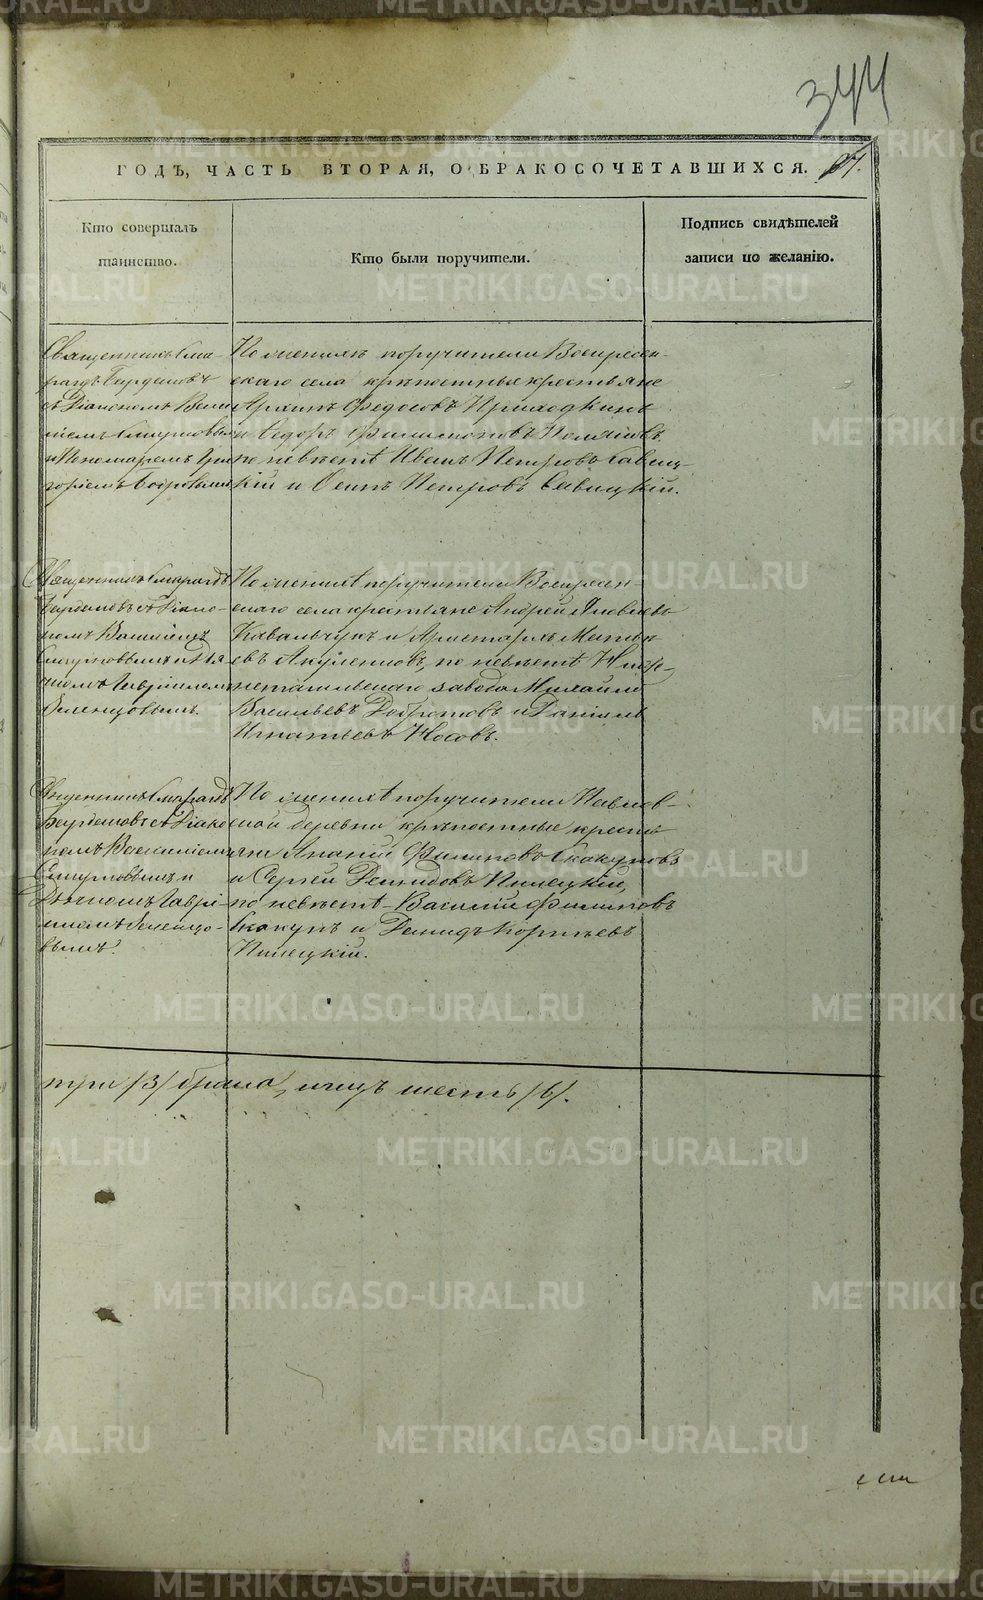 344
ГОДЪ, ЧАСТЬ ВТОРАЯ, О БРАКОСОЧЕТАВШИХСЯ.
Кто совершалъ
таинство.
Кто были поручители.
Подпись свидѣтелей
записи по желанію.
Священникъ Сма-
рагдъ
съ Діакономъ Васи
ліемъ Смирновым
и Пономаремъ Гри
горіемъ
По женихѣ поручители Воскресен-
скаго села крѣпостные крестьяне
Архипъ Федосовъ Приходкинъ
и Ѳедоръ Филиповъ
по невѣстѣ Иванъ Петровъ Савиц-
кій и Осипъ Петровъ Савицкій.
Священникъ Смарагдъ
съ Діако-
номъ Василіемъ
Смирновымъ и Дья
чкомъ Гавріиломъ
Зеленцовымъ.
По женихѣ поручители Воскресен-
скаго села крестьяне Андрей Яковлевъ
Кавальчукъ и Аристархъ Матве
евъ по невѣстѣ Ниж-
нетагильскаго завода Михайло
Васильевъ и Даніилъ
Игнатьевъ Носовъ.
Священникъ Смарагдъ
съ Діако
номъ Василіемъ
Смирновымъ и
Дьячкомъ Гаврі-
иломъ Зеленцо-
вымъ.
По женихѣ поручители Павлов-
ской деревни крѣпостные кресть
яне Ананій Филиповъ Скакуновъ
и Сергей Демидовъ Пилецкій,
по невѣстѣ Василій Филиповъ
Скакунъ и Демидъ Корнѣевъ
Пилецкій.
три /3/ брака, лицъ шесть /6/.
METRIKI.GASO-URAL.RU